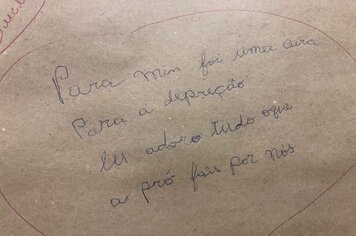 Para mim foi uma cura
Para a depreção
Eu adóro tudo oque
a pró fais por nós